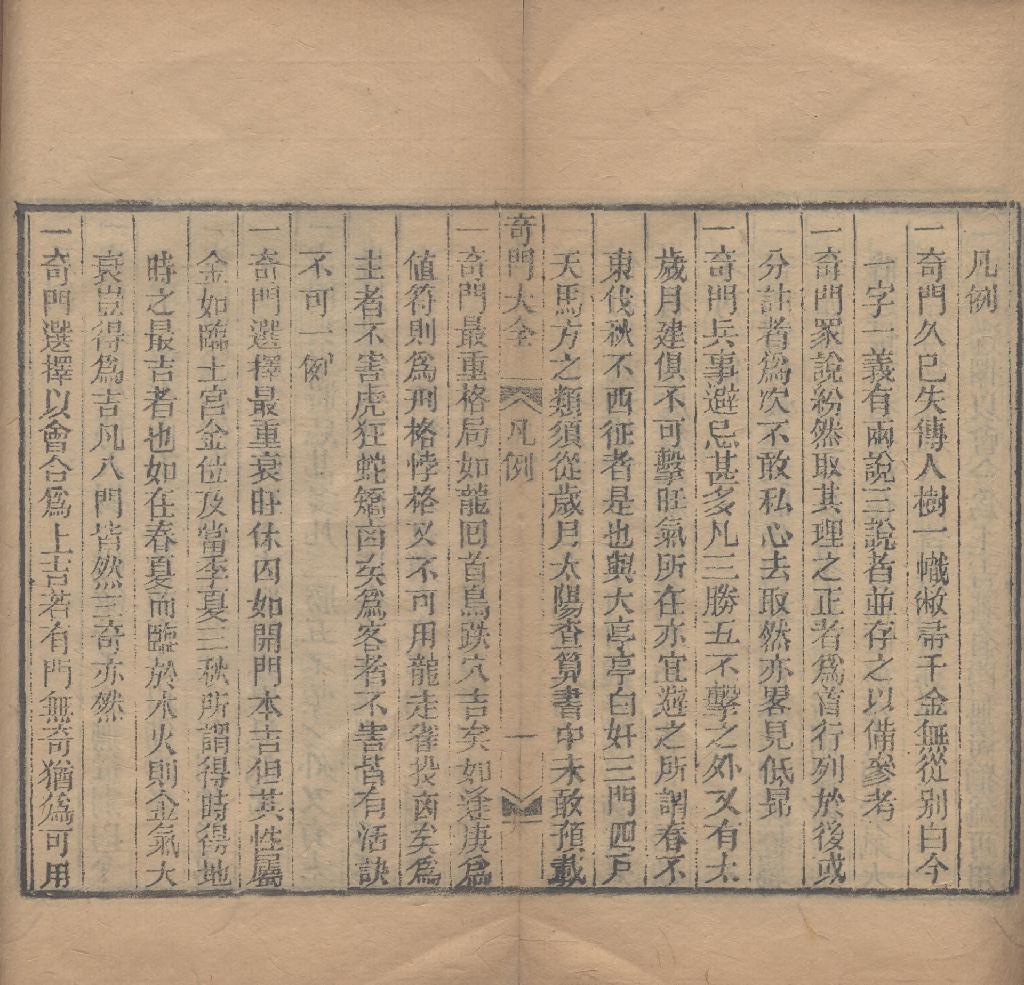 凡例
一奇門久已失傳人樹一幟敝帚千金無從别白今
一字一義有兩說三說者並存之以備參考
一奇門眾說紛然取其理之正者爲首行列於後或
分註者爲次不敢私心去取然亦畧見低昂
一奇門兵事避忌甚多凡三勝五不擊之外又有太
歲月建俱不可擊旺氣所在亦宜避之所謂春不
東伐秋不西征者是也與大亭亭白奸三門四戸
天馬方之類須從歲月太陽查算書中未敢預載
奇門大全 凡例 一
一奇門最重格局如龍囘首鳥跌穴吉矣如逢庚爲
値符則爲刑格悖格又不可用龍走雀投凶矣爲
主者不害虎狂蛇矯凶矣爲客者不害皆有活訣
不可一例
一奇門選擇最重衰旺休囚如開門本吉但其性屬
金如臨土宮金位及當季夏三秋所謂得時得地
時之最吉者也如在春夏而臨於木火則金氣大
衰豈得爲吉凡八門皆然三奇亦然
一奇門選擇以會合爲上吉若有門無奇猶爲可用